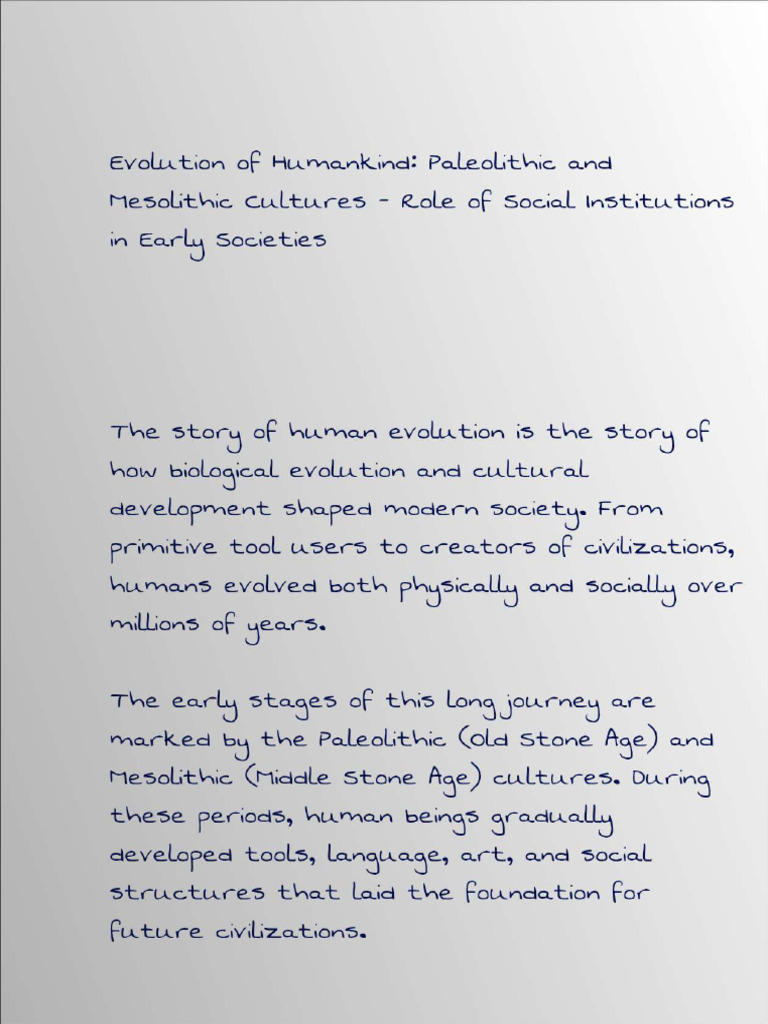 Evolution of Humankind: Paleolithic and
Mesolithic Cultures - Role of Social Institutions
in Early Societies
The story of human evolution is the story of
how biological evolution and cultural
development shaped modern society. From
primitive tool users to creators of civilizations,
humans evolved both physically and socially over
millions of years.
The early stages of this long journey are
marked by the Paleolithic (Old Stone Age) and
Mesolithic (Middle Stone Age) cultures. During
these periods, human beings gradually
developed tools, language, art, and social
structures that laid the foundation for
future civilizations.